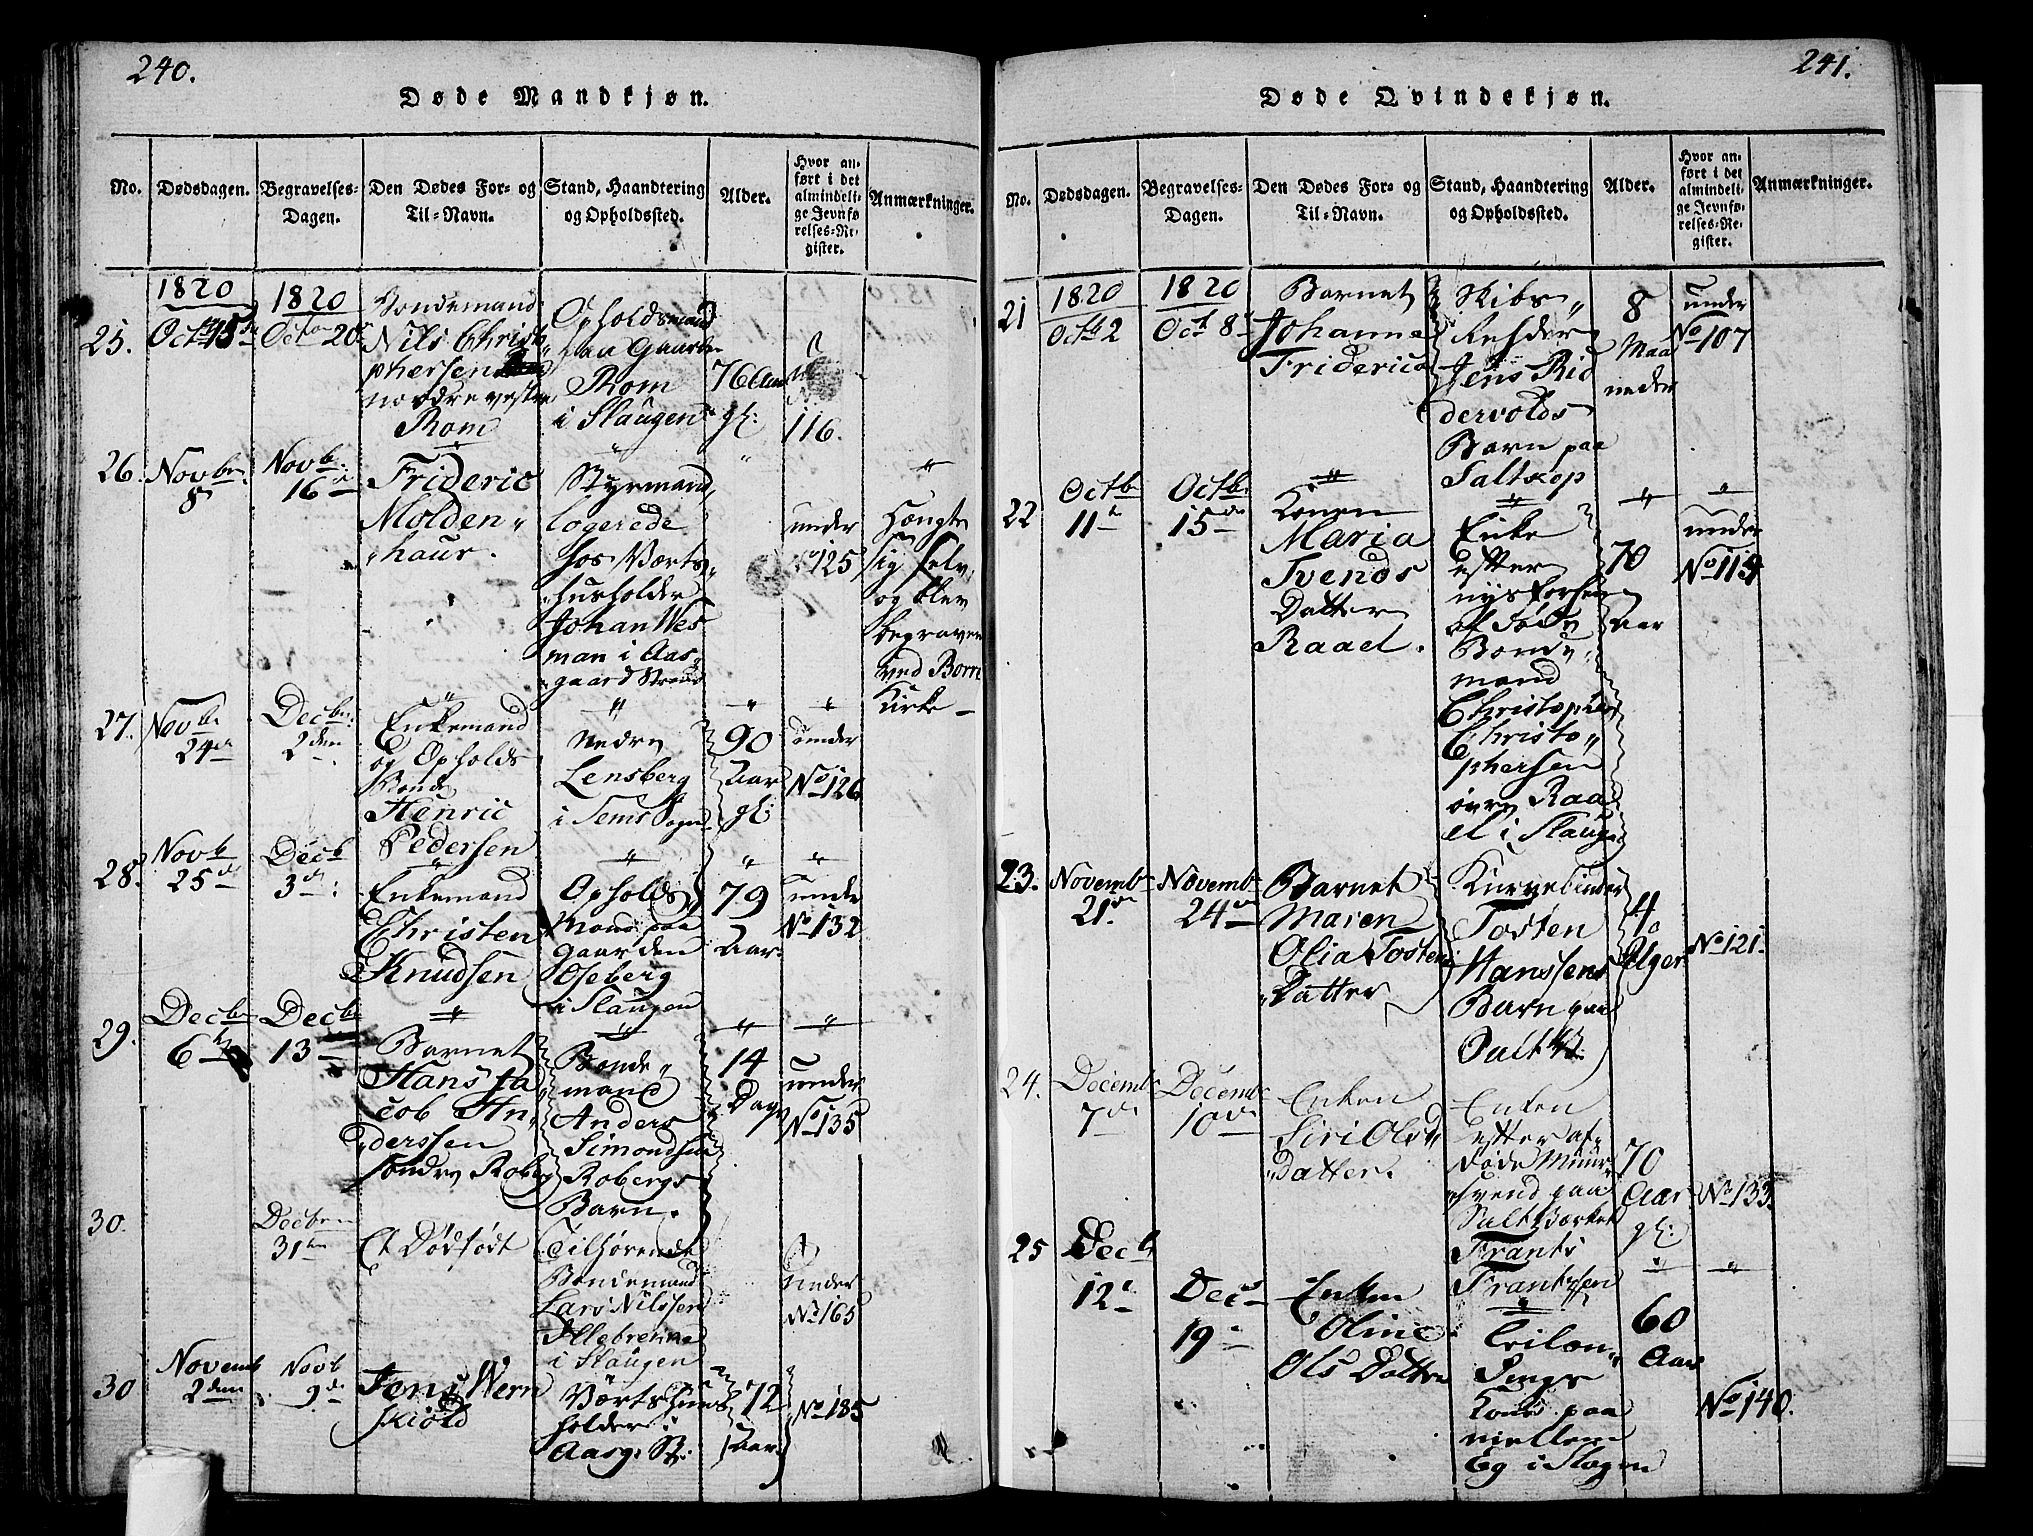 240.
Døde Mandkjøn.
No.
Dødsdagen.
Begravelses-
Dagen.
Den Dødes For- og
Til-Navn.
Stand, Haandtering
og Opholdssted.
Alder.
Hvor an-
ført i det
almindeli-
ge Jevnfø-
relses-Re-
gister.
Anmærkninger.
25.
1820
Oct 15
1820
20
Bondemand
Nils Christo
phersen
nordre vestre
Rom
Opholdsmand
paa Gaarden
Rom
i Slaugen
76 Aar
gl:
116.
26.
Novbr
8
Novb:
16
Frideric
Molden
haur.
Styrmand
logerede
hos Værts
husholder
Johan Wes
man i Aas
gaardstrand
under
125
Hængte
sig selv
og blev
begraven
ved Borre
Kirke
27.
Novbr
24
Decbr:
2den
Enkemand
og Opholds
Bonde
Henric
Pedersen
Nedre
Lensberg
i Sems Sogn
90
Aar
gl:
under
No 126
28.
Novb
25
Decb
3
Enkemand
Christen
Knudsen
Opholds
Mand paa
Gaarden
Oseberg
i Slaugen
79
Aar
under
No 132
29.
Decbr
6
Decbr
13
Barnet
Hans Ja
cob An
derssen
søndre Roberg
Bonde
mand
Anders
Simondsen
Robergs
Barn.
14
Dage
under
No 135
30.
Decbr
31
Et Dødfødt
Tilhørende
Bondemand
Lars Nilssen
Illebrenne
i Slaugen
under
No 165
30
Novemb
2den
Novb
9
Jens Wern
skiold
Værtshuus
holder i
Aasg. St.
72
Aar
No 185
241.
Døde Qvindekjøn.
No.
Dødsdagen.
Begravelses-
Dagen.
Den Dødes For- og
Til-Navn.
Stand, Haandtering
og Opholdssted.
Alder.
Hvor an-
ført i det
almindeli-
ge Jevnfø-
relses-Re-
gister.
Anmærkninger.
21
1820
Oct 2
1820
Oct 8
Barnet
Johanne
Friderica
Skibs
Rehder
Jens Rid
dervolds
Barn paa
Saltkop
8
Maa
neder
under
No 107
22
Octb
11
Octb
15
Konen
Maria
Svends
Datter
Raael.
Enke
efter
af Døde
Bonde
mand
Christopher
Christo
phersen
øvre Raa
el i Slaugen
70
Aar
under
No 114
23.
Novemb
21
Novemb
24
Barnet
Maren
Olia Tosten
Datter
Kurvebinder
Tosten
Hanssens
Barn paa
Salt V.
4
Uger
No 121
24.
Decemb
7
Decemb
10
Enken
Siri Ols
Datter.
Enken
efter af
døde Muur
svend paa
Saltværket
Frants
Frantssen
70
Aar
gl:
No 133
25
Decb
12
Dec
19
Enken
Oline
Ols Datter
Kone paa
mellem
Eg i Slagen
60
Aar
No 140.